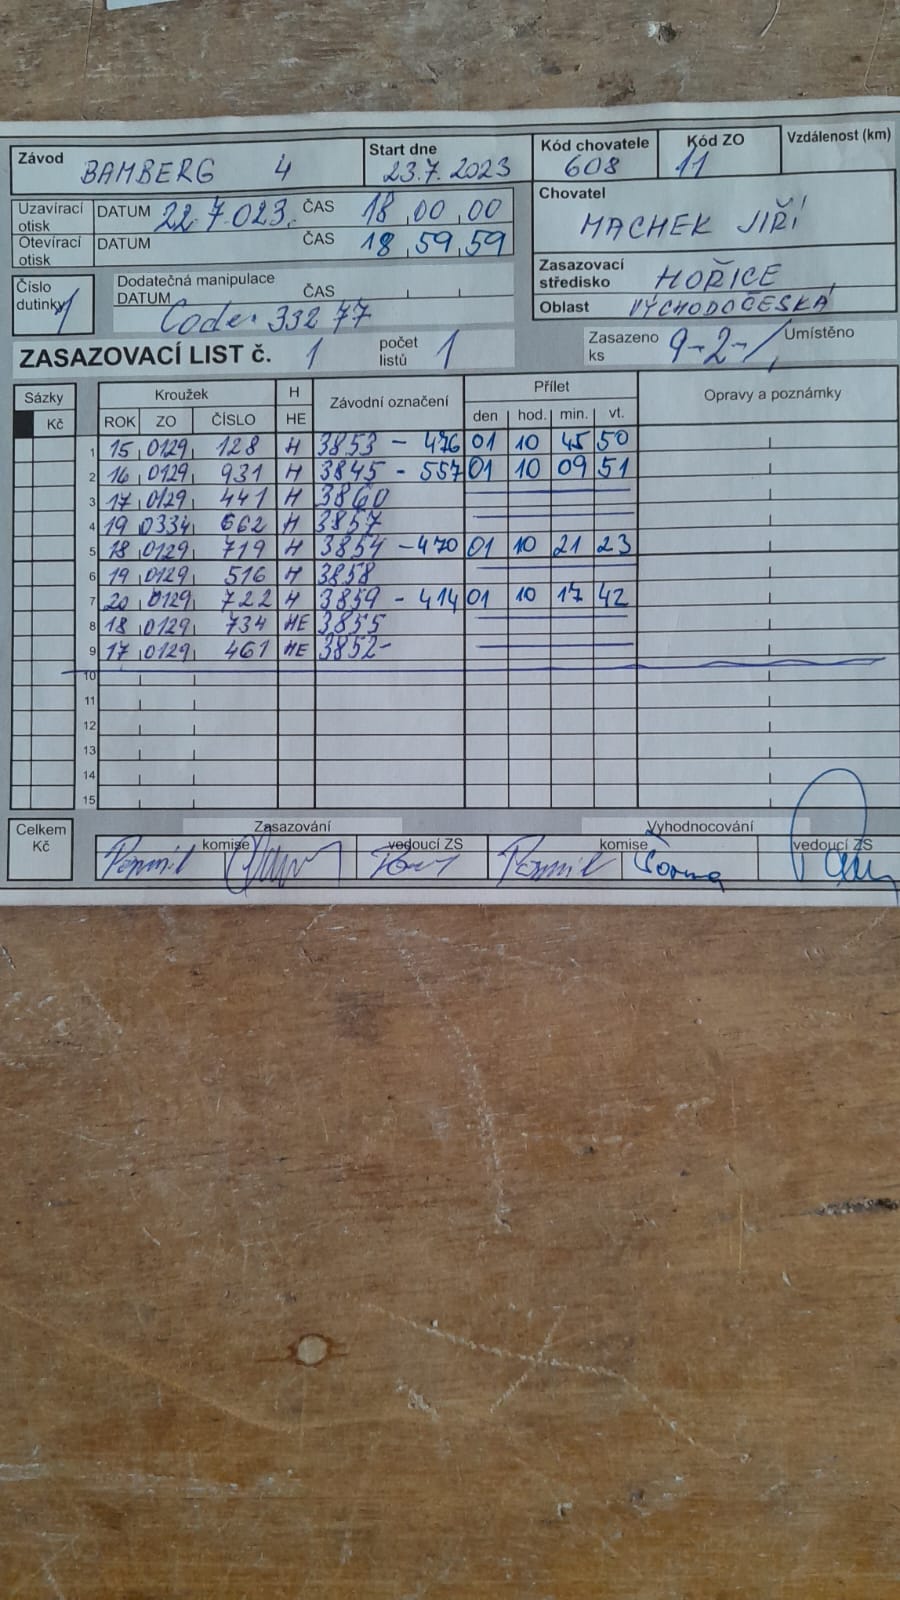 Závod BAMBERG 4 Start dne 23.7.2023 Kód chovatele 608 Kód ZO 11 Vzdálenost (km)
Uzavírací otisk DATUM 22.7.023. ČAS 18 00 00
Otevírací otisk DATUM ČAS 18 59 59
Chovatel MACHEK JIŘÍ
Číslo dutinky 1 Dodatečná manipulace DATUM ČAS
Code. 33277
Zasazovací středisko HOŘICE
Oblast VÝCHODOČESKÁ
ZASAZOVACÍ LIST č. 1 počet listů 1 Zasazeno ks 9-2-/ Umístěno
Sázky Kroužek H Závodní označení Přílet Opravy a poznámky
Kč ROK ZO ČÍSLO HE den hod. min. vt.
1 15 0129 128 H 3853 - 476 01 10 45 50
2 16 0129 931 H 3845 - 557 01 10 09 51
3 17 0129 441 H 3860
4 19 0334 662 H 3857
5 18 0129 719 H 3854 - 470 01 10 21 23
6 19 0129 516 H 3858
7 20 0129 722 H 3859 - 414 01 10 17 42
8 18 0129 734 HE 3855
9 17 0129 461 HE 3852-
10
11
12
13
14
15
Celkem Kč Zasazování Vyhodnocování
komise vedoucí ZS komise vedoucí ZS